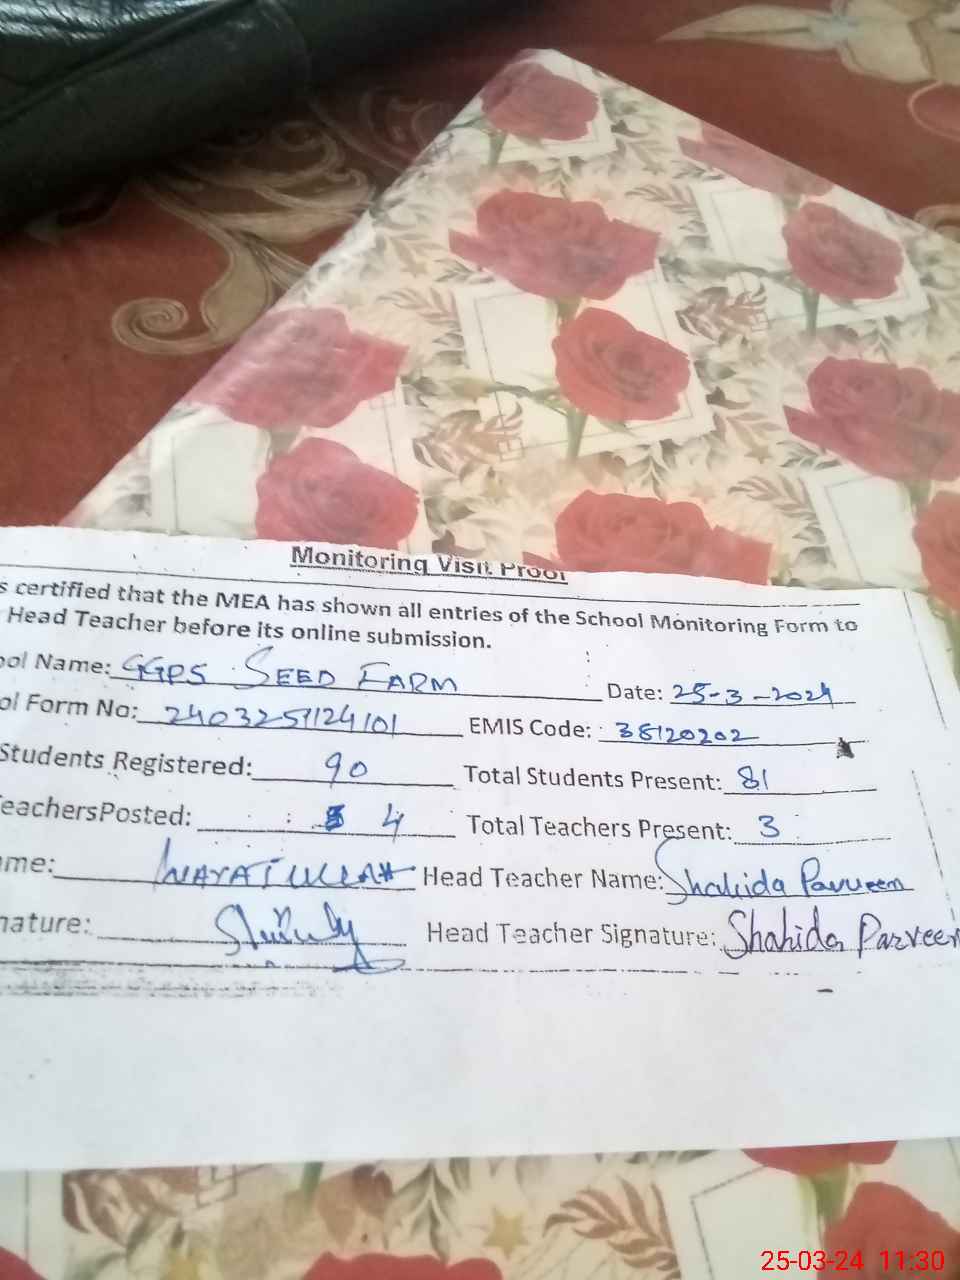 Monitoring Visit Proof
s certified that the MEA has shown all entries of the School Monitoring Form to
Head Teacher before its online submission.
ool Name: GGPS SEED FARM Date: 25-3-2024
ol Form No: 2403251124101 EMIS Code: 38120202
Students Registered: 90 Total Students Present: 81
TeachersPosted: 4 Total Teachers Present: 3
ame: INAYATULLAH Head Teacher Name: Shahida Parveen
nature: Head Teacher Signature: Shahida Parveen
25-03-24 11:30